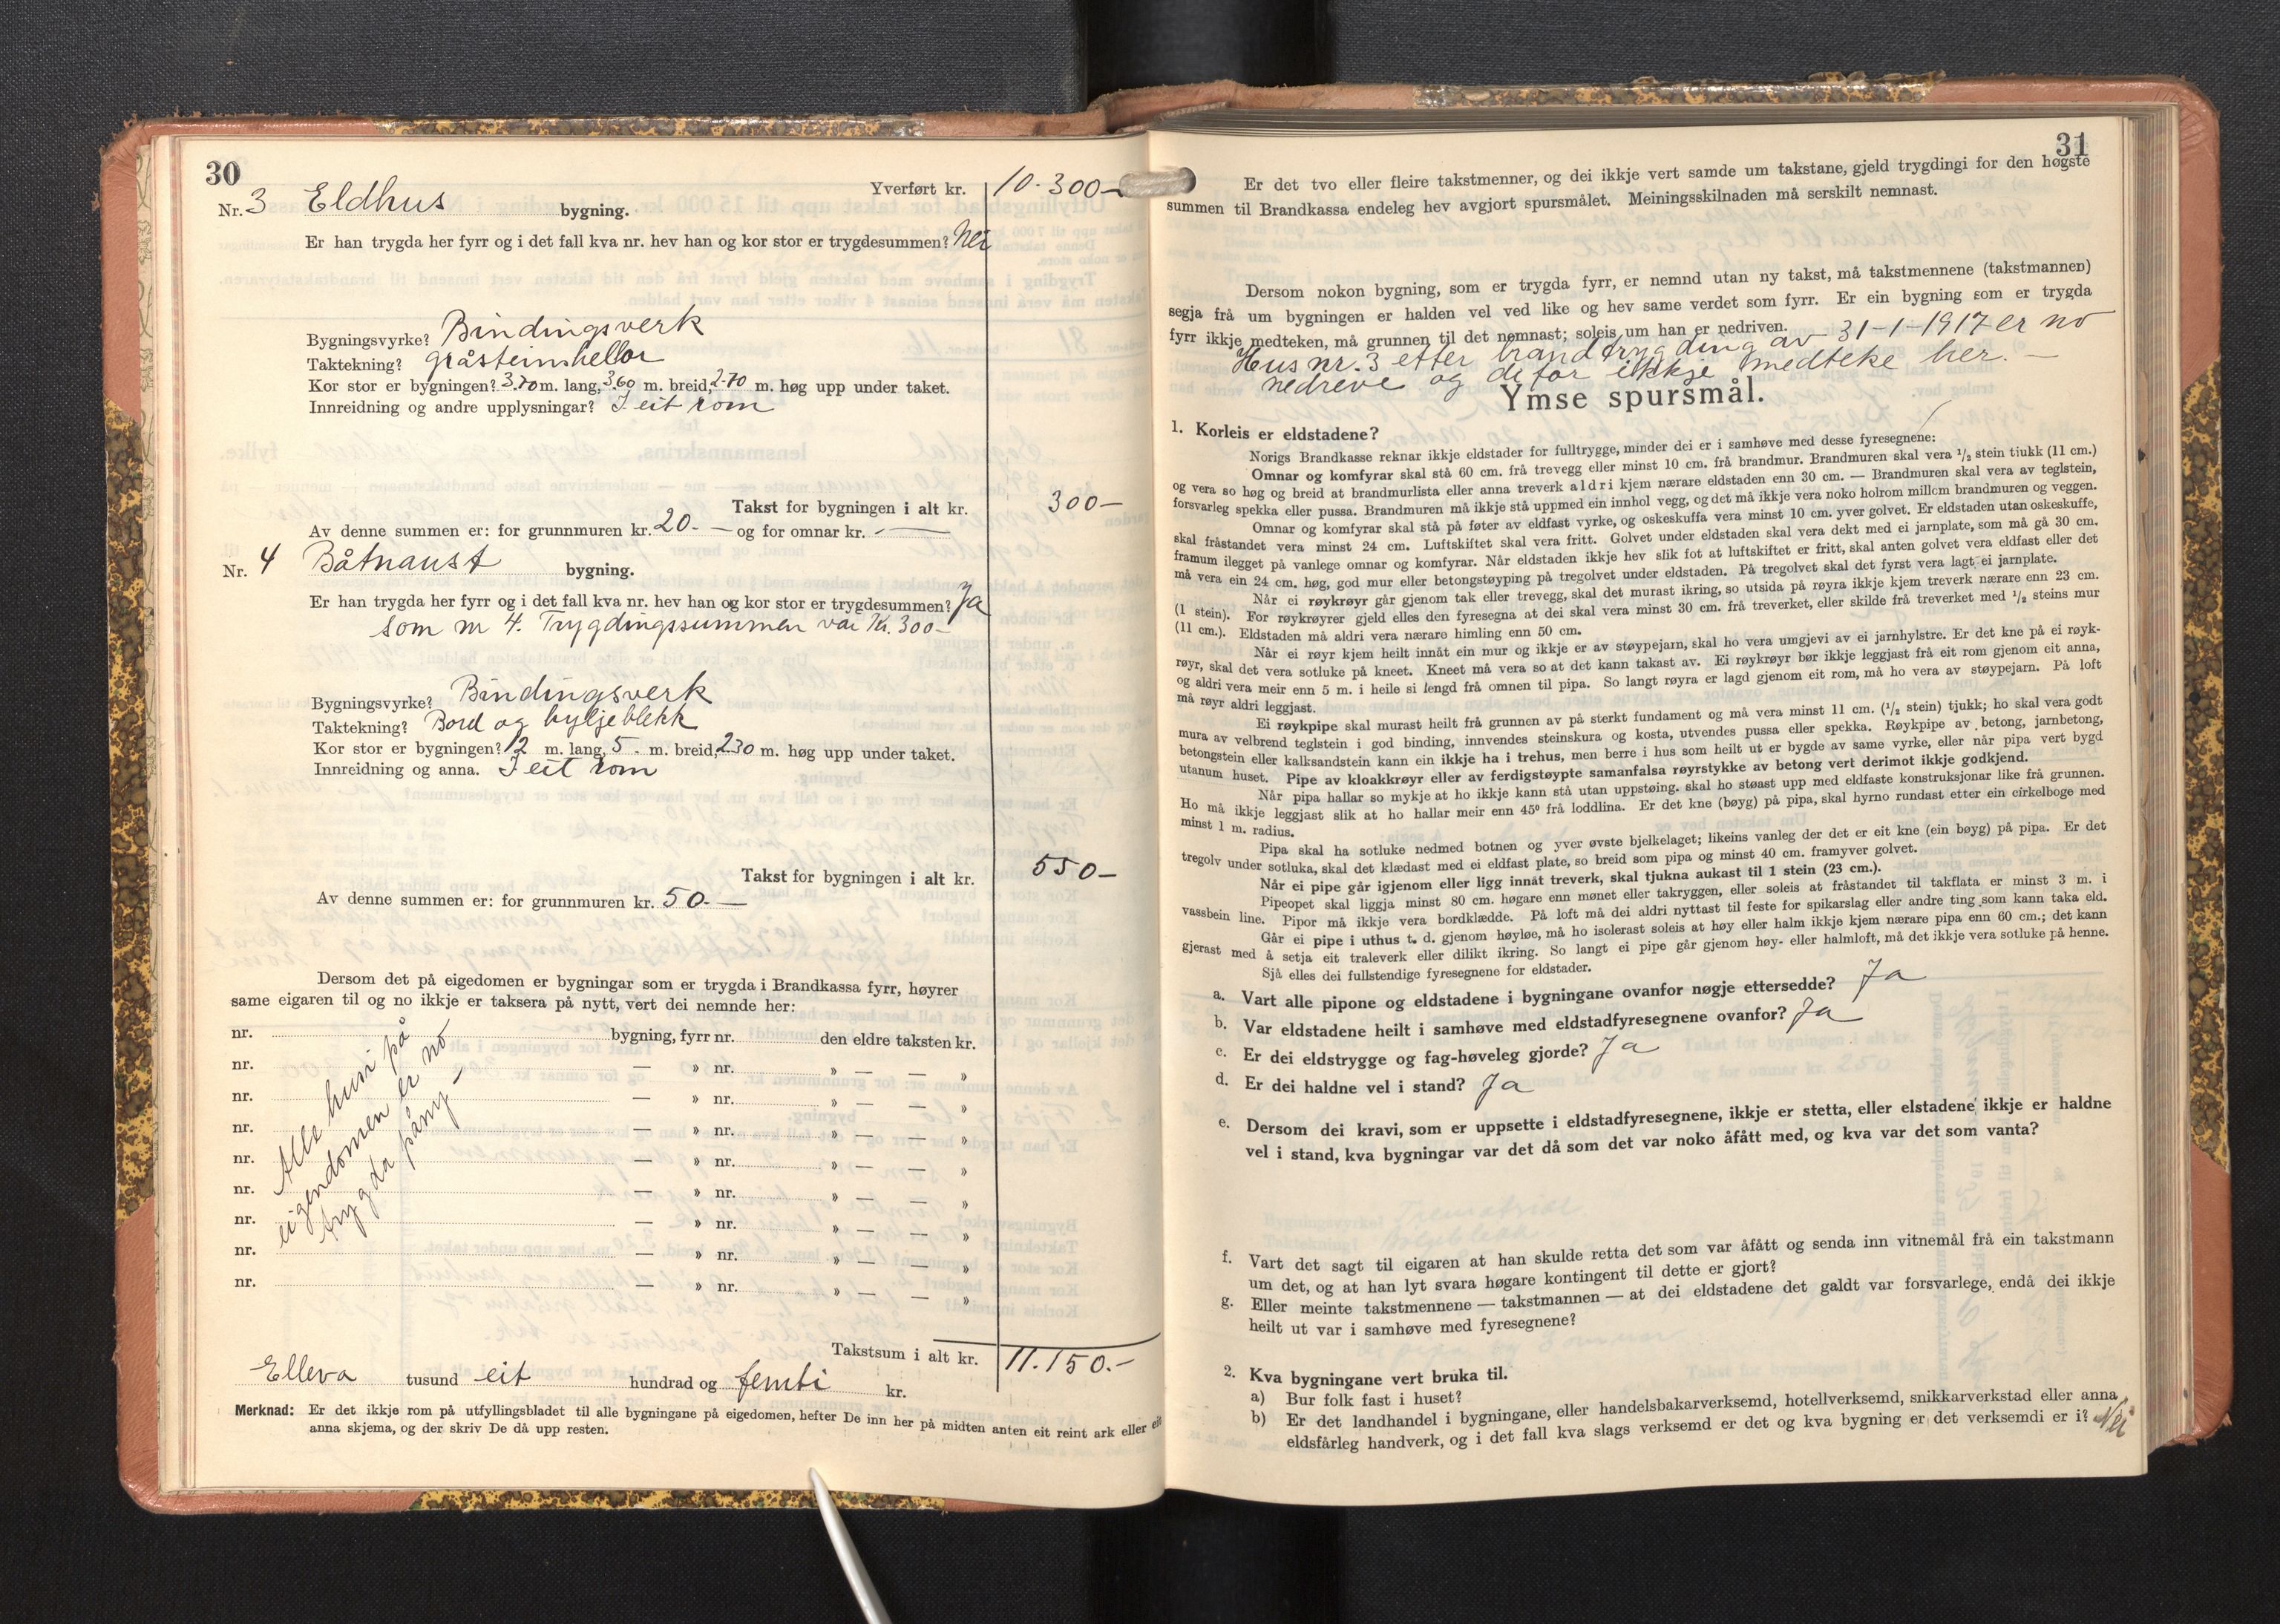 30
Yverført kr. 10.300-
Nr. 3 Eldhus bygning.
Er han trygda her fyrr og i det fall kva nr. hev han og kor stor er trygdesummen? Nei
Bygningsvyrke? Bindingsverk
Taktekning? gråsteinshellor
Kor stor er bygningen? 3.70 m. lang, 3.60 m. breid, 2.70 m. høg upp under taket.
Innreidning og andre upplysningar? I eit rom
Takst for bygningen i alt kr. 300-
Av denne summen er: for grunnmuren kr. 20.- og for omnar kr. -
Nr. 4 Båtnaust bygning.
Er han trygda her fyrr og i det fall kva nr. hev han og kor stor er trygdesummen? Ja
som nr 4. Trygdingssummen var Kr. 300-
Bygningsvyrke? Bindingsverk
Taktekning? Bord og bylgjeblekk
Kor stor er bygningen? 12 m. lang, 5 m. breid, 2.30 m. høg upp under taket.
Innreidning og anna. I eit rom
Takst for bygningen i alt kr. 550-
Av denne summen er: for grunnmuren kr. 50.-
Dersom det på eigedomen er bygningar som er trygda i Brandkassa fyrr, høyrer
same eigaren til og no ikkje er taksera på nytt, vert dei nemnde her:
nr. bygning, fyrr nr. den eldre taksten kr.
nr. — » nr. » — — »
nr. — » nr. » — — »
nr. — » nr. » — — »
nr. — » nr. » — — »
nr. — » nr. » — — »
nr. — » nr. » — — »
nr. — » nr. » — — »
nr. — » nr. » — — »
Alle husi på
eigendomen er no
trygda påny -
Takstsum i alt kr. 11.150.-
Elleva tusund eit hundrad og femti kr.
Merknad: Er det ikkje rom på utfyllingsbladet til alle bygningane på eigedomen, hefter De inn her på midten anten eit reint ark eller eit
anna skjema, og der skriv De då upp resten.
31
Er det tvo eller fleire takstmenner, og dei ikkje vert samde um takstane, gjeld trygdingi for den høgste
summen til Brandkassa endeleg hev avgjort spursmålet. Meiningsskilnaden må serskilt nemnast.
Dersom nokon bygning, som er trygda fyrr, er nemnd utan ny takst, må takstmennene (takstmannen)
segja frå um bygningen er halden vel ved like og hev same verdet som fyrr. Er ein bygning som er trygda
fyrr ikkje medteken, må grunnen til det nemnast; soleis um han er nedriven.
Hus nr. 3 etter brandtrygding av 31-1-1917 er no
nedreve og defor ikkje medteke her. —
Ymse spursmål.
1. Korleis er eldstadene?
Norigs Brandkasse reknar ikkje eldstader for fulltrygge, minder dei er i samhøve med desse fyresegnene:
Omnar og komfyrar skal stå 60 cm. frå trevegg eller minst 10 cm. frå brandmur. Brandmuren skal vera 1/2 stein tjukk (11 cm.)
og vera so høg og breid at brandmurlista eller anna treverk aldri kjem nærare eldstaden enn 30 cm. — Brandmuren skal vera av teglstein,
forsvarleg spekka eller pussa. Brandmuren må ikkje stå uppmed ein innhol vegg, og det må ikkje vera noko holrom millom brandmuren og veggen.
Omnar og komfyrar skal stå på føter av eldfast vyrke, og oskeskuffa vera minst 10 cm. yver golvet. Er eldstaden utan oskeskuffe,
skal fråstandet vera minst 24 cm. Luftskiftet skal vera fritt. Golvet under eldstaden skal vera dekt med ei jarnplate, som må gå 30 cm.
framum ilegget på vanlege omnar og komfyrar. Når eldstaden ikkje hev slik fot at luftskiftet er fritt, skal anten golvet vera eldfast eller det
må vera ein 24 cm. høg, god mur eller betongstøyping på tregolvet under eldstaden. På tregolvet skal det fyrst vera lagt ei jarnplate.
Når ei røykrøyr går gjenom tak eller trevegg, skal det murast ikring, so utsida på røyra ikkje kjem treverk nærare enn 23 cm.
(1 stein). For røykrøyrer gjeld elles den fyresegna at dei skal vera minst 30 cm. frå treverket, eller skilde frå treverket med 1/2 steins mur
(11 cm.). Eldstaden må aldri vera nærare himling enn 50 cm.
Når ei røyr kjem heilt innåt ein mur og ikkje er av støypejarn, skal ho vera umgjevi av ei jarnhylstre. Er det kne på ei røyk-
røyr, skal det vera sotluke på kneet. Kneet må vera so at det kann takast av. Ei røykrøyr bør ikkje leggjast frå eit rom gjenom eit anna,
og aldri vera meir enn 5 m. i heile si lengd frå omnen til pipa. So langt røyra er lagd gjenom eit rom, må ho vera av støypejarn. På loft
må røyr aldri leggjast.
Ei røykpipe skal murast heilt frå grunnen av på sterkt fundament og må vera minst 11 cm. (1/2 stein) tjukk; ho skal vera godt
mura av velbrend teglstein i god binding, innvendes steinskura og kosta, utvendes pussa eller spekka. Røykpipe av betong, jarnbetong,
betongstein eller kalksandstein kann ein ikkje ha i trehus, men berre i hus som heilt ut er bygde av same vyrke, eller når pipa vert bygd
utanum huset. Pipe av kloakkrøyr eller av ferdigstøypte samanfalsa røyrstykke av betong vert derimot ikkje godkjend.
Når pipa hallar so mykje at ho ikkje kann stå utan uppstøing, skal ho støast upp med eldfaste konstruksjonar like frå grunnen.
Ho må ikkje leggjast slik at ho hallar meir enn 45° frå loddlina. Er det kne (bøyg) på pipa, skal hyrno rundast etter ein cirkelboge med
minst 1 m. radius.
Pipa skal ha sotluke nedmed botnen og yver øvste bjelkelaget; likeins vanleg der det er eit kne (ein bøyg) på pipa. Er det
tregolv under sotluka, skal det klædast med ei eldfast plate, so breid som pipa og minst 40 cm. framyver golvet.
Når ei pipe går igjenom eller ligg innåt treverk, skal tjukna aukast til 1 stein (23 cm.).
Pipeopet skal liggja minst 80 cm. høgare enn mønet eller takryggen, eller soleis at fråstandet til takflata er minst 3 m. i
vassbein line. Pipor må ikkje vera bordklædde. På loft må dei aldri nyttast til feste for spikarslag eller andre ting som kann taka eld.
Går ei pipe i uthus t. d. gjenom høyløe, må ho isolerast soleis at høy eller halm ikkje kjem nærare pipa enn 60 cm.; det kann
gjerast med å setja eit traleverk eller dilikt ikring. So langt ei pipe går gjenom høy- eller halmloft, må det ikkje vera sotluke på henne.
Sjå elles dei fullstendige fyresegnene for eldstader.
a. Vart alle pipone og eldstadene i bygningane ovanfor nøgje ettersedde? Ja
b. Var eldstadene heilt i samhøve med eldstadfyresegnene ovanfor? Ja
c. Er dei eldstrygge og fag-høveleg gjorde? Ja
d. Er dei haldne vel i stand? Ja
e. Dersom dei kravi, som er uppsette i eldstadfyresegnene, ikkje er stetta, eller elstadene ikkje er haldne
vel i stand, kva bygningar var det då som det var noko åfått med, og kva var det som vanta?
f. Vart det sagt til eigaren at han skulde retta det som var åfått og senda inn vitnemål frå ein takstmann
um det, og at han lyt svara høgare kontingent til dette er gjort?
g. Eller meinte takstmennene — takstmannen — at dei eldstadene det galdt var forsvarlege, endå dei ikkje
heilt ut var i samhøve med fyresegnene?
2. Kva bygningane vert bruka til.
a) Bur folk fast i huset?
b) Er det landhandel i bygningane, eller handelsbakarverksemd, hotellverksemd, snikkarverkstad eller anna
eldsfårleg handverk, og i det fall kva slags verksemd er det og kva bygning er det verksemdi er i? Nei